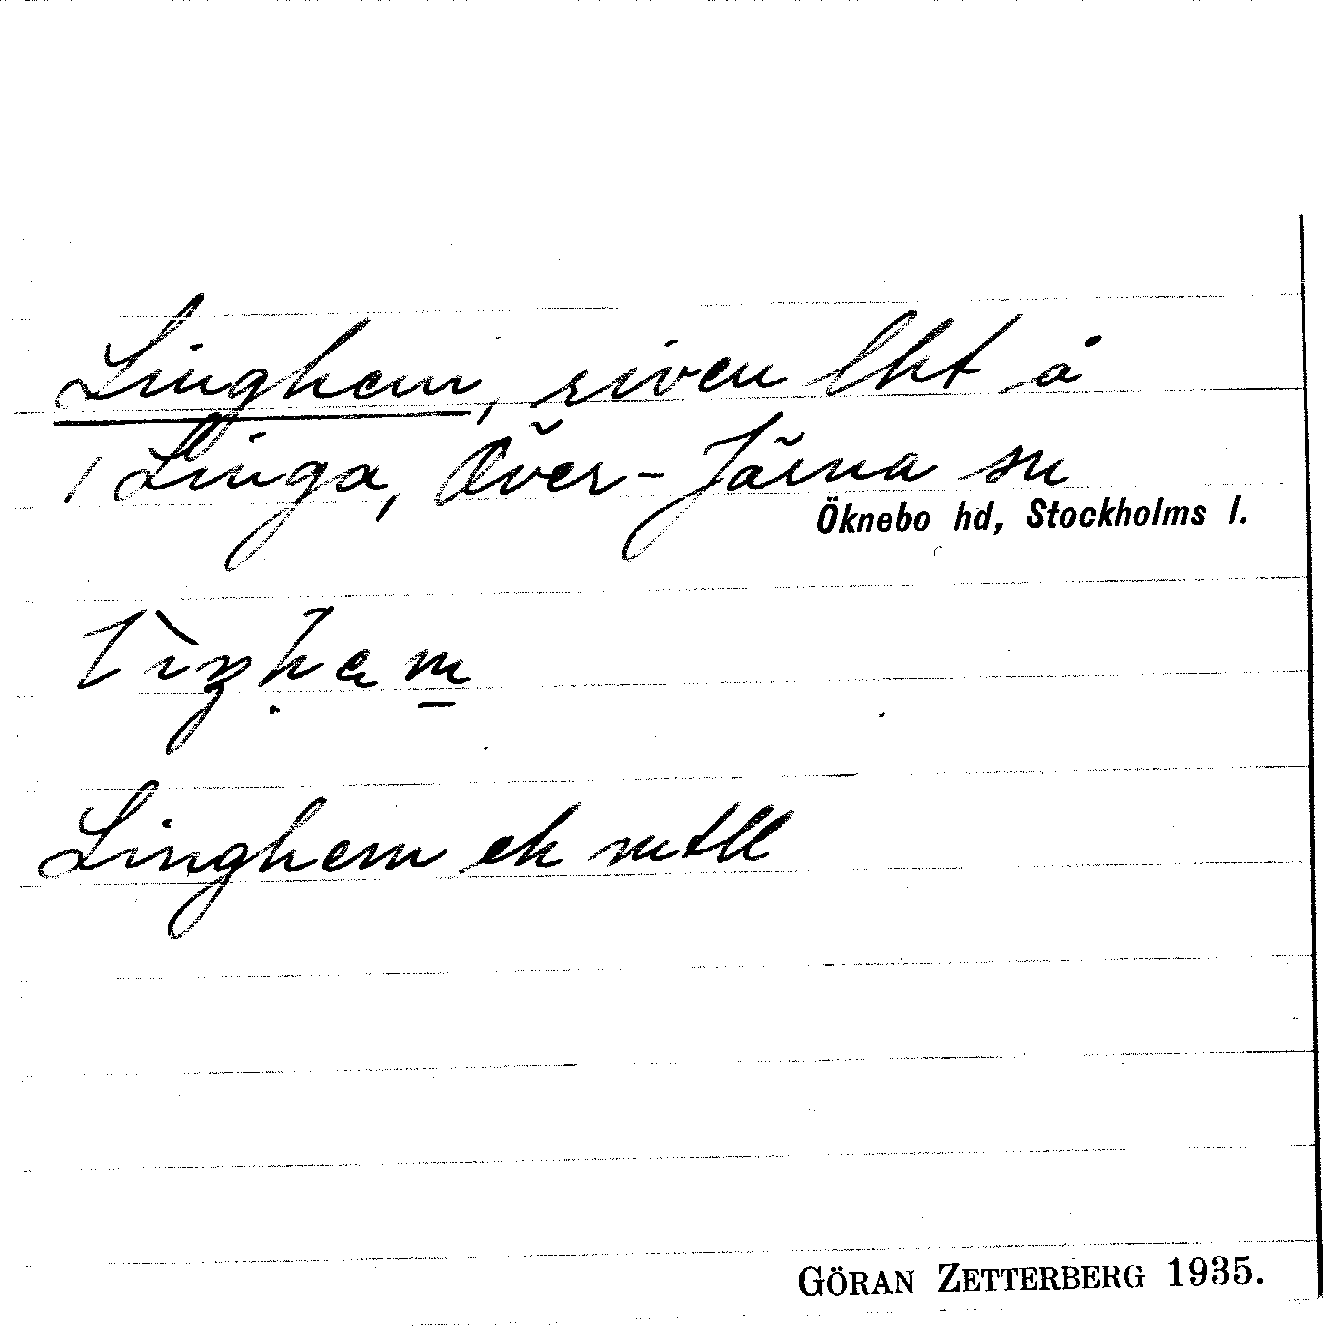 Linghem, riven lht å
1 Linga, Över-Järna sn
Öknebo hd, Stockholms l.
Linghem ek mtll
GÖRAN ZETTERBERG 1935.